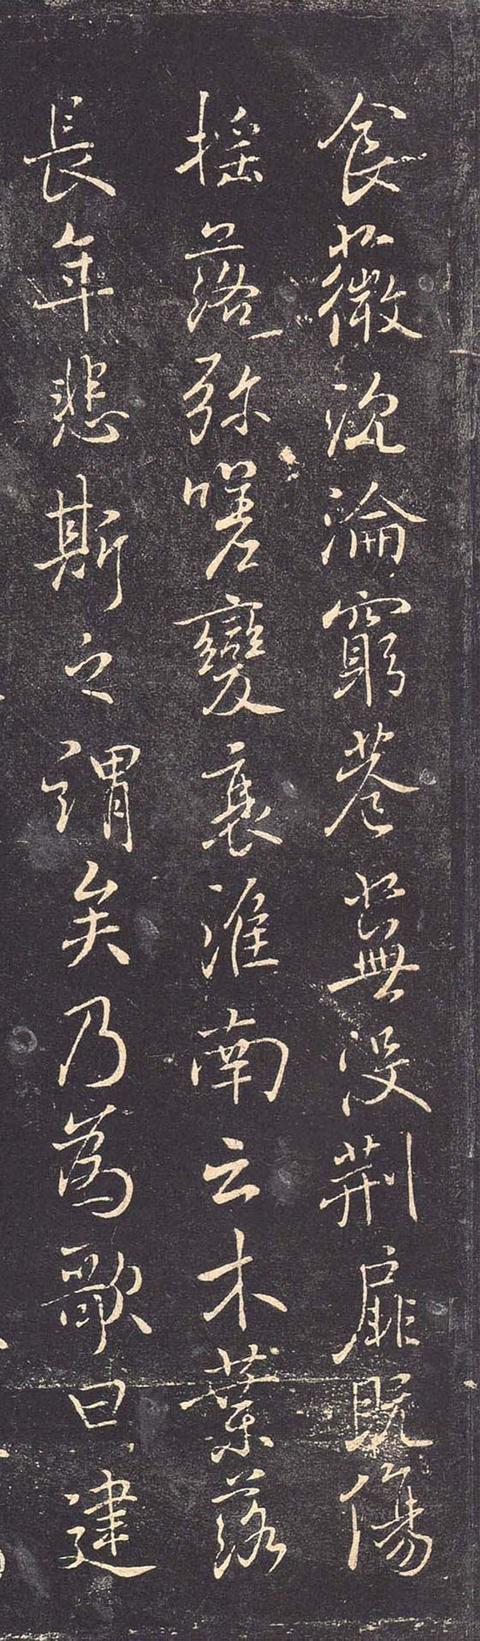 食薇沉淪窮巷蕪没荆扉既傷
摇落弥嗟變衰淮南云木葉落
長年悲斯之謂矣乃為歌曰建